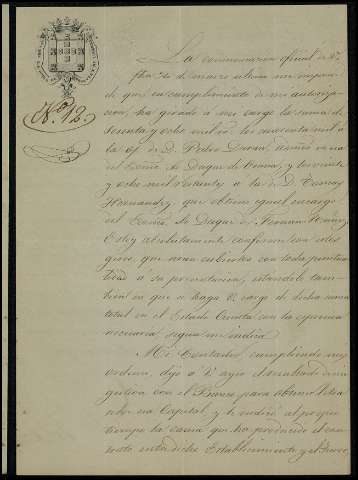 Nº 12.
La comunicacion oficial de V.
fha 30 de marzo ultimo me impone
de que en cumplimiento de mi autoriza-
cion, ha girado á mi cargo la suma de
Sesenta y ocho mil rs. los cuarenta mil á
la of. de D. Pedro Duran,
del Exmo. Sr. Duque de Osuna, y los veinte
y ocho mil restantes á la de D. Tomas
Hernandez, que obtiene igual encargo
del Exmo. Sr. Duque de Fernan Nuñez.
Estoy absolutamente conforme con estos
giros, que seran cubiertos con toda puntua-
lidad á su presentacion, estandolo tam-
bien en que se haga V. cargo de dicha suma
total en el Estado Cuenta con la
necesaria, segun me indica.
Mi Contador, cumpliendo mi
orden, dijo á V. ayer el resultado de mi
gestion con el Banco para abrirme
en esa Capital, y le tendrá al propio
tiempo la causa que ha producido el con-
trato entre dicho Establecimiento y el